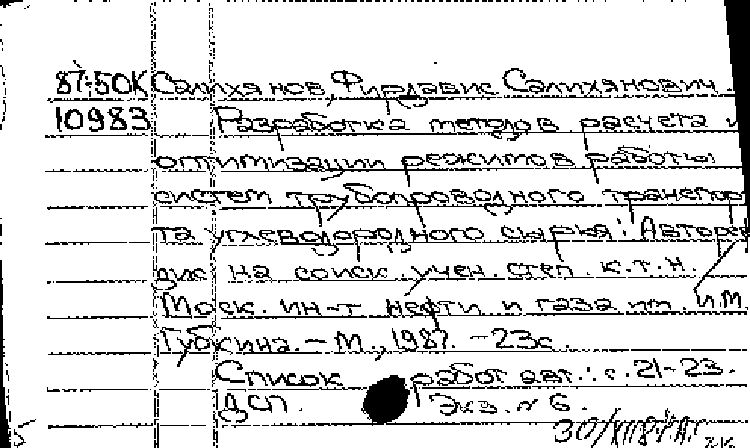 87:50К Салихянов, Фирдавис Салихянович.
10983 Разработка методов расчета и
оптимизации режимов работы
систем трубопроводного транспор
та углеводородного сырья: Авторе
дис на соиск. учен. степ. к.т.н.
Моск. ин-т нефти и газа им. И.М.
Губкина. – М., 1987. – 23с.
Список работ авт.: с. 21-23.
ДСП. Экз. № 6.
30/XII